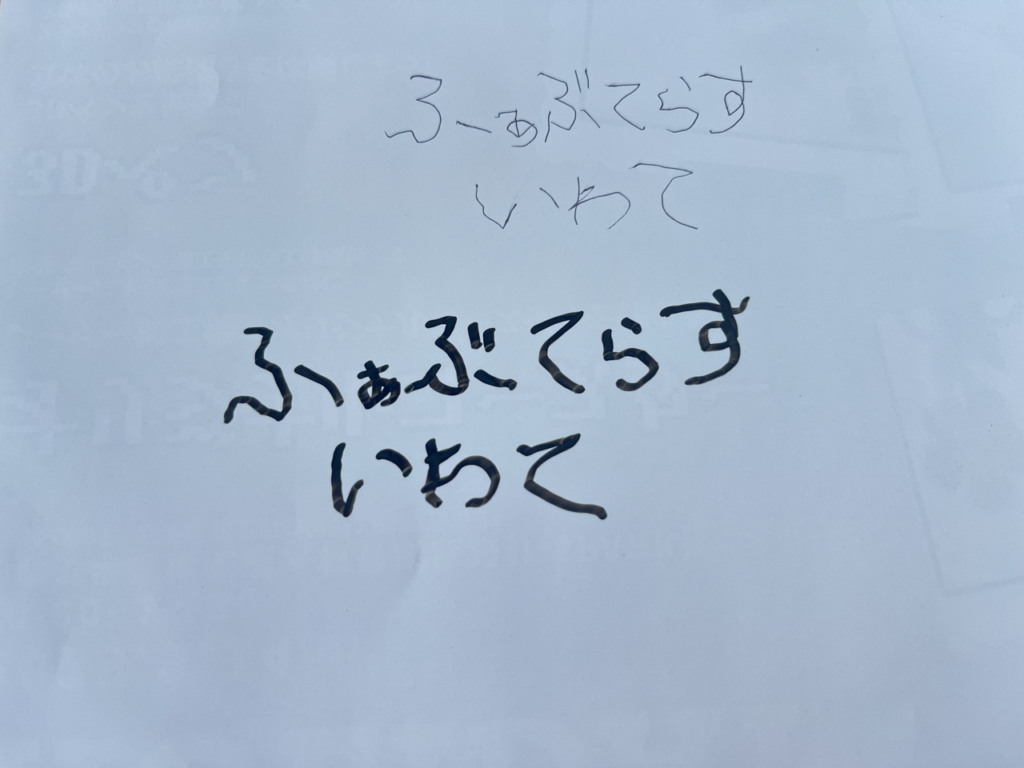 ふぁぶてらす
いわて
ふぁぶてらす
いわて